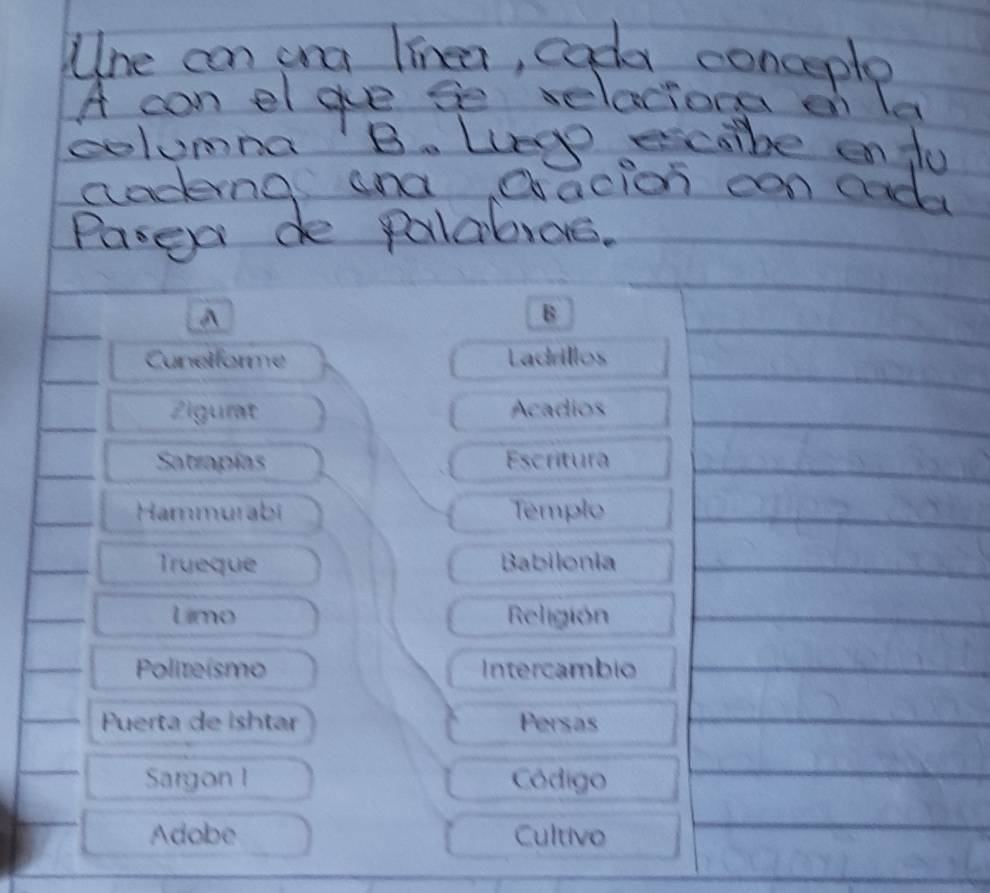 Une con una linea, cada concepto
A con el que se relaciona en la
columna B. Luego escribe en tu
cuaderno una oracion con cada
Pareja de palabras.
A B
Cuneiforme Ladrillos
Zigurat Acadios
Satrapías Escritura
Hammurabi Templo
Trueque Babilonia
Limo Religión
Politeísmo Intercambio
Puerta de Ishtar Persas
Sargon I Código
Adobe Cultivo